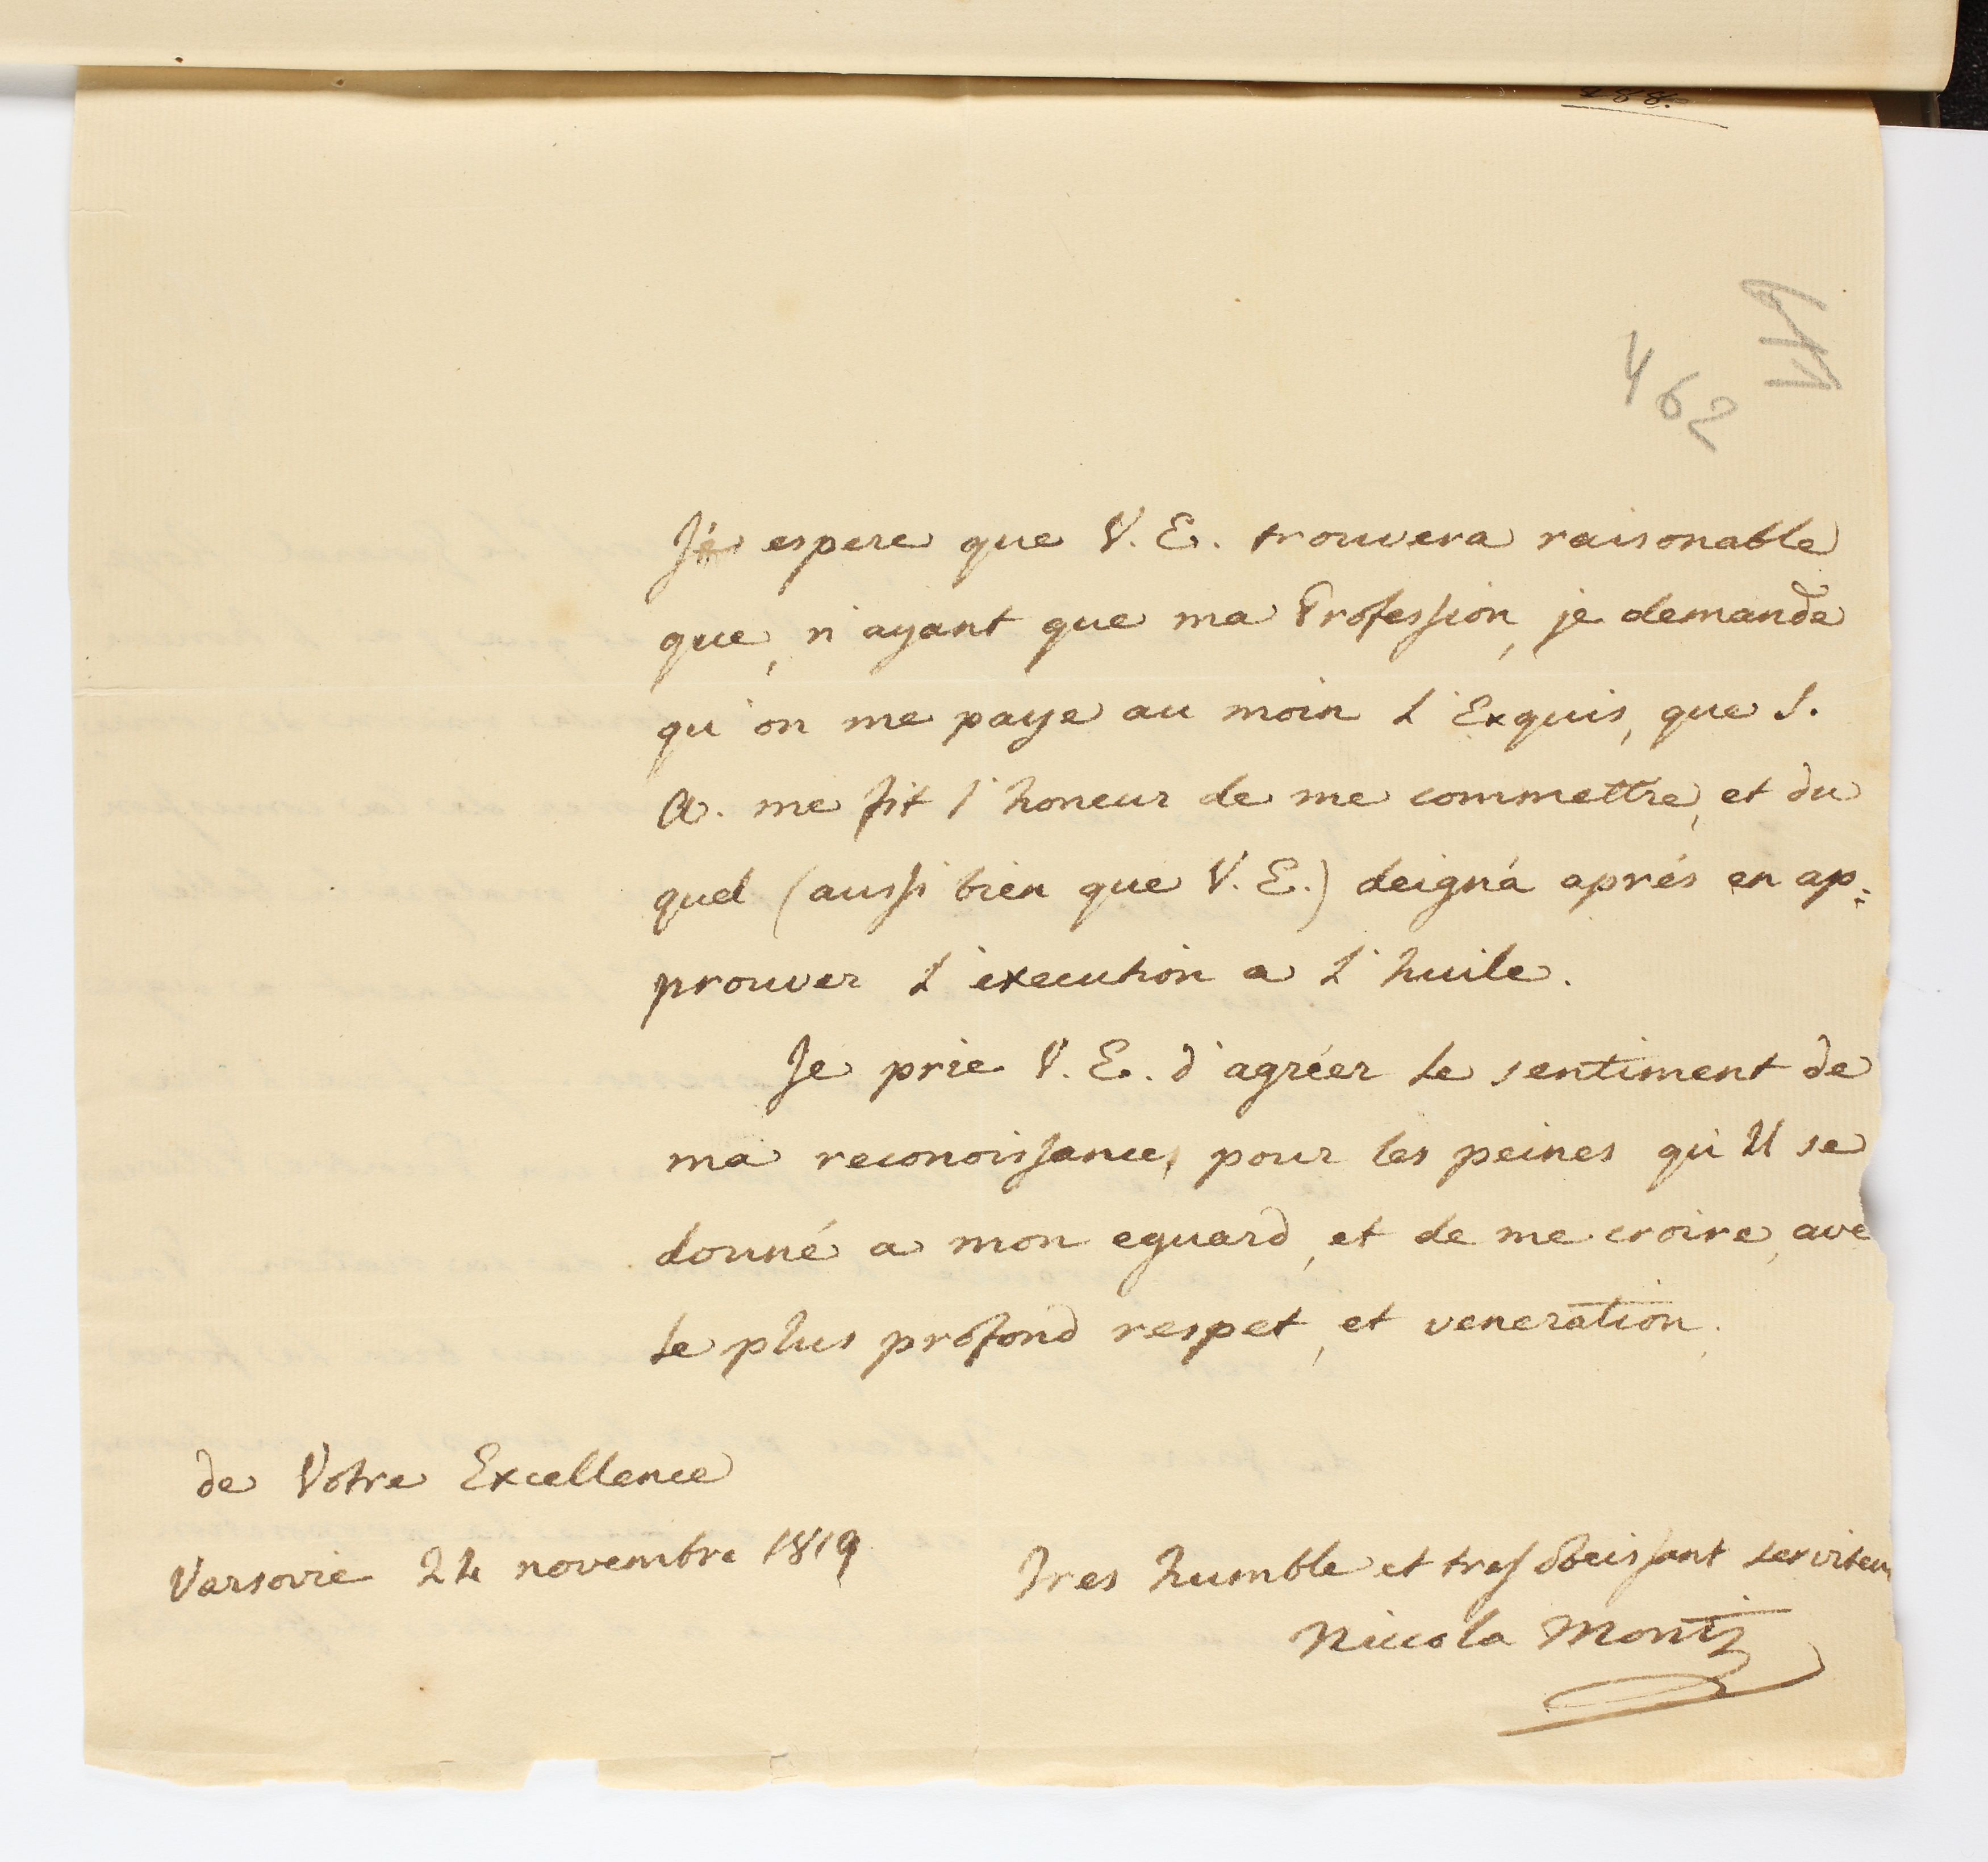 188.
462
J'espere que V. E. trouvera raisonable
que, n'ayant que ma Profession, je demande
qu'on me paye au moin l'Exquis, que S.
A. me fit l'honeur de me commettre, et du
quel (aussi bien que V. E.) deigná aprés en ap:
prouver l'execution a l'huile.
Je prie V. E. d'agréer le sentiment de
ma reconoissance, pour les peines qu'Il se
donné a mon eguard, et de me croire, ave
le plus profond respet, et veneration.
de Votre Excellence
Varsovie 24 novembre 1819
Tres humble et tres obeissant serviteur
Niccola Monti